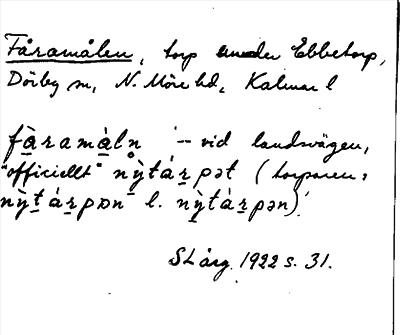 Fåramålen, torp under Ebbetorp,
Dörby sn, N. Möre hd, Kalmar l
fàramàln – vid landsvägen,
"officiellt" nỳtárpət (torparen:
nỳtárpɒn l. nỳtárpən).
SLårg. 1922 s. 31.